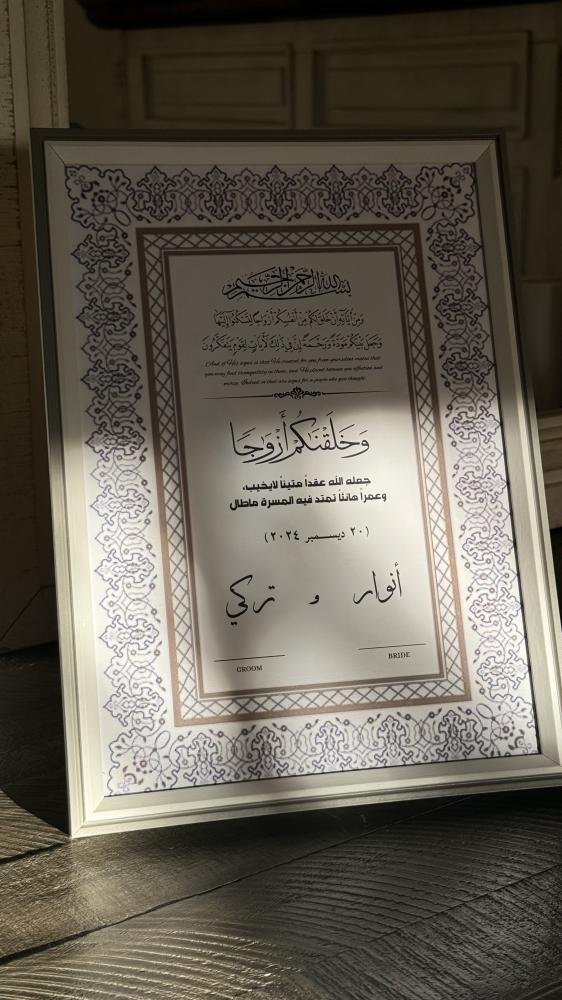 بسم الله الرحمن الرحيم
وَمِنْ آيَاتِهِ أَنْ خَلَقَ لَكُم مِّنْ أَنفُسِكُمْ أَزْوَاجًا لِّتَسْكُنُوا إِلَيْهَا
وَجَعَلَ بَيْنَكُم مَّوَدَّةً وَرَحْمَةً إِنَّ فِي ذَلِكَ لَآيَاتٍ لِّقَوْمٍ يَتَفَكَّرُونَ
And of His signs is that He created for you from yourselves mates that
you may find tranquillity in them; and He placed between you affection and
mercy. Indeed in that are signs for a people who give thought.
وَخَلَقْنَاكُمْ أَزْوَاجًا
جعله الله عقداً متيناً لايخيب،
وعمراً هانئاً تمتد فيه المسرة ماطال
(٢٠ ديسمبر ٢٠٢٤)
أنوار و تركي
GROOM BRIDE